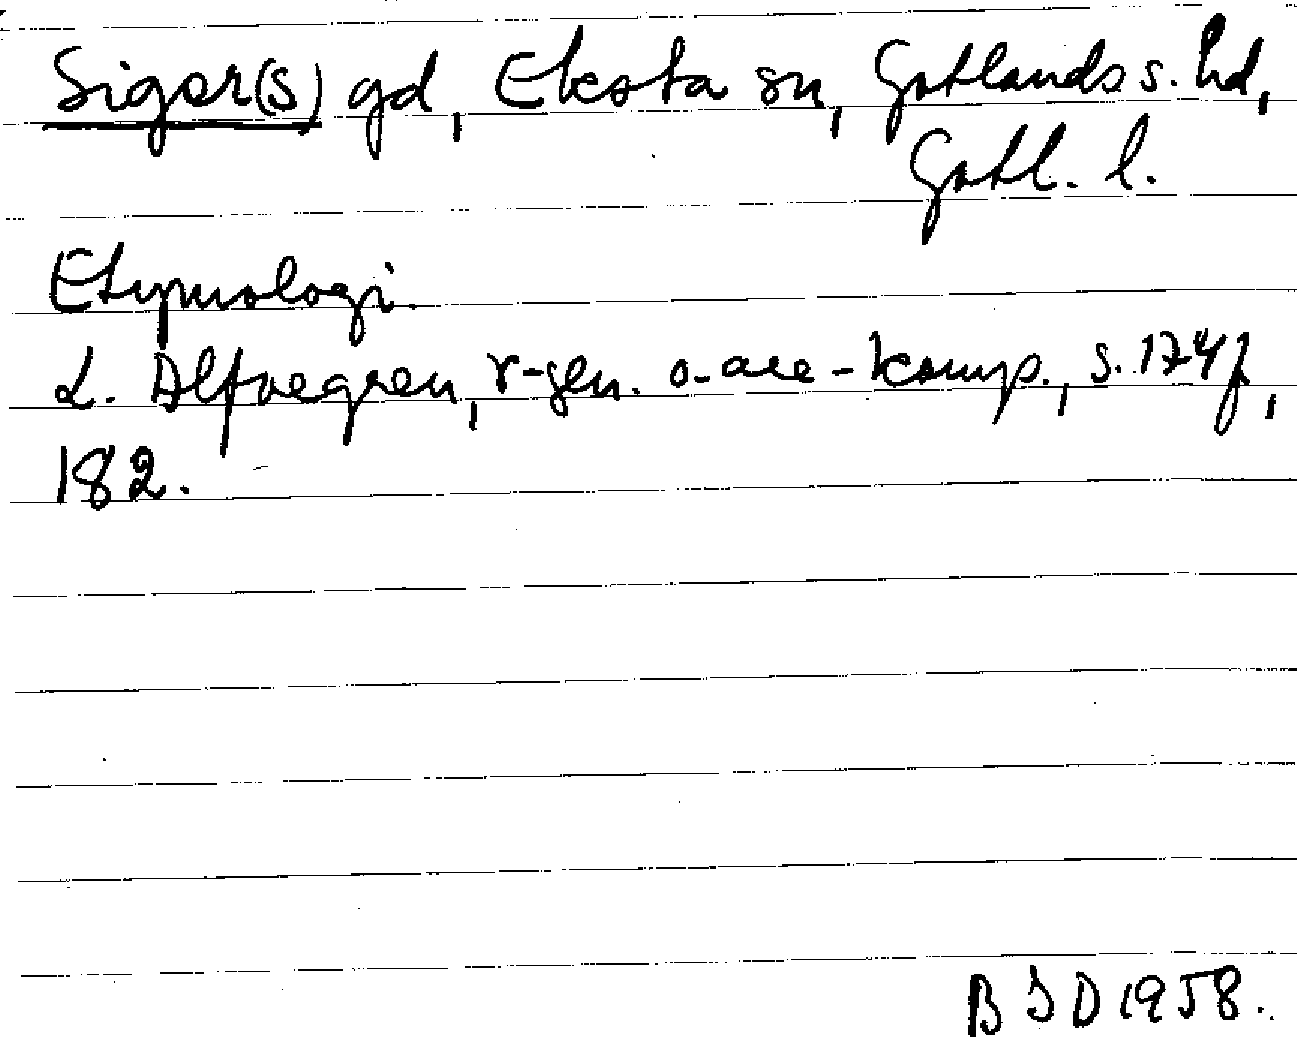 Siger(s) gd, Eksta sn, Gotlands s. hd,
Gotl. l.
Etymologi.
L. Alfvegren, r-gen. o. are-komp., s. 174f,
182.
B S D 1958.